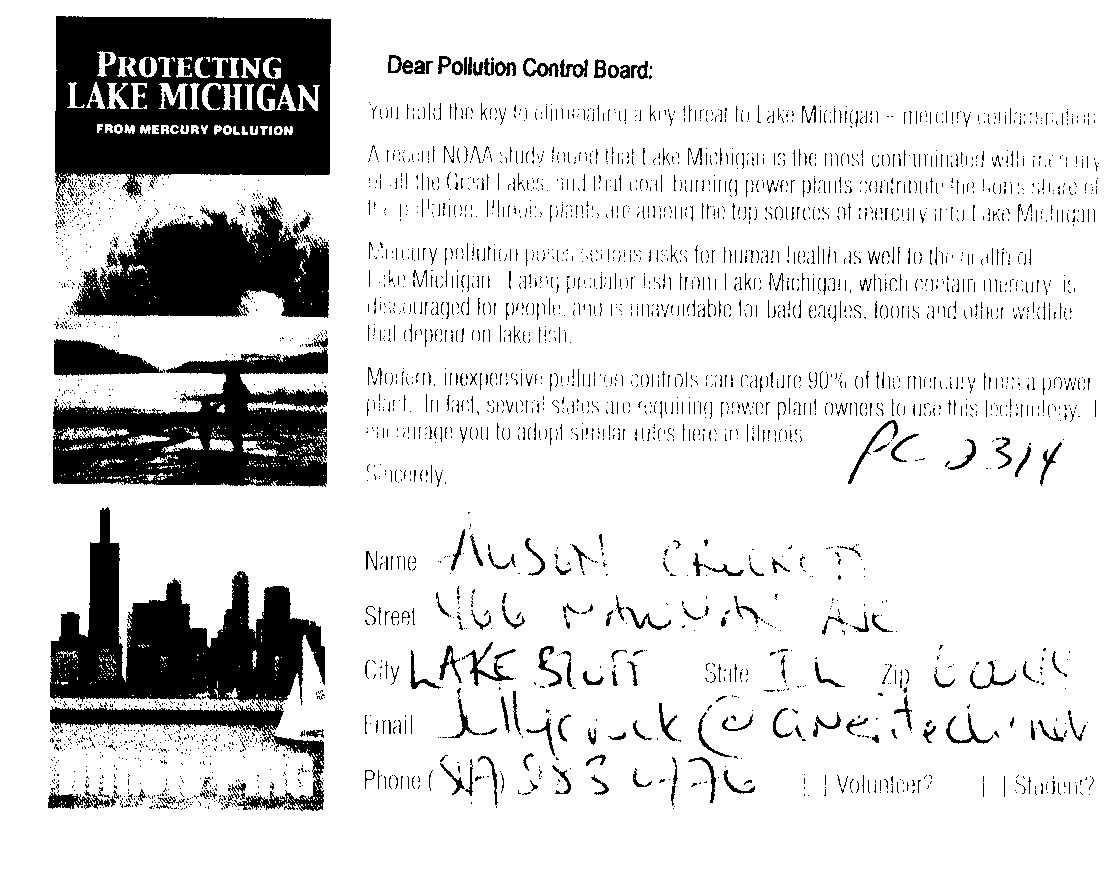 PROTECTING
LAKE MICHIGAN
FROM MERCURY POLLUTION
Dear Pollution Control Board:
You hold the key to eliminating a key threat to Lake Michigan – mercury contamination.
A recent NOAA study found that Lake Michigan is the most contaminated with mercury
of all the Great Lakes, and that coal-burning power plants contribute the lion's share of
the pollution. Illinois plants are among the top sources of mercury into Lake Michigan.
Mercury pollution poses serious risks for human health as well to the health of
Lake Michigan. Eating predator fish from Lake Michigan, which contain mercury, is
discouraged for people, and is unavoidable for bald eagles, loons and other wildlife
that depend on lake fish.
Modern, inexpensive pollution controls can capture 90% of the mercury from a power
plant. In fact, several states are requiring power plant owners to use this technology. I
encourage you to adopt similar rules here in Illinois.
PC 2314
Sincerely,
Name ALISON
Street 466 Ave
City LAKE BLUFF State IL Zip
Email @ameritech.net
Phone (847)
[ ] Volunteer? [ ] Student?